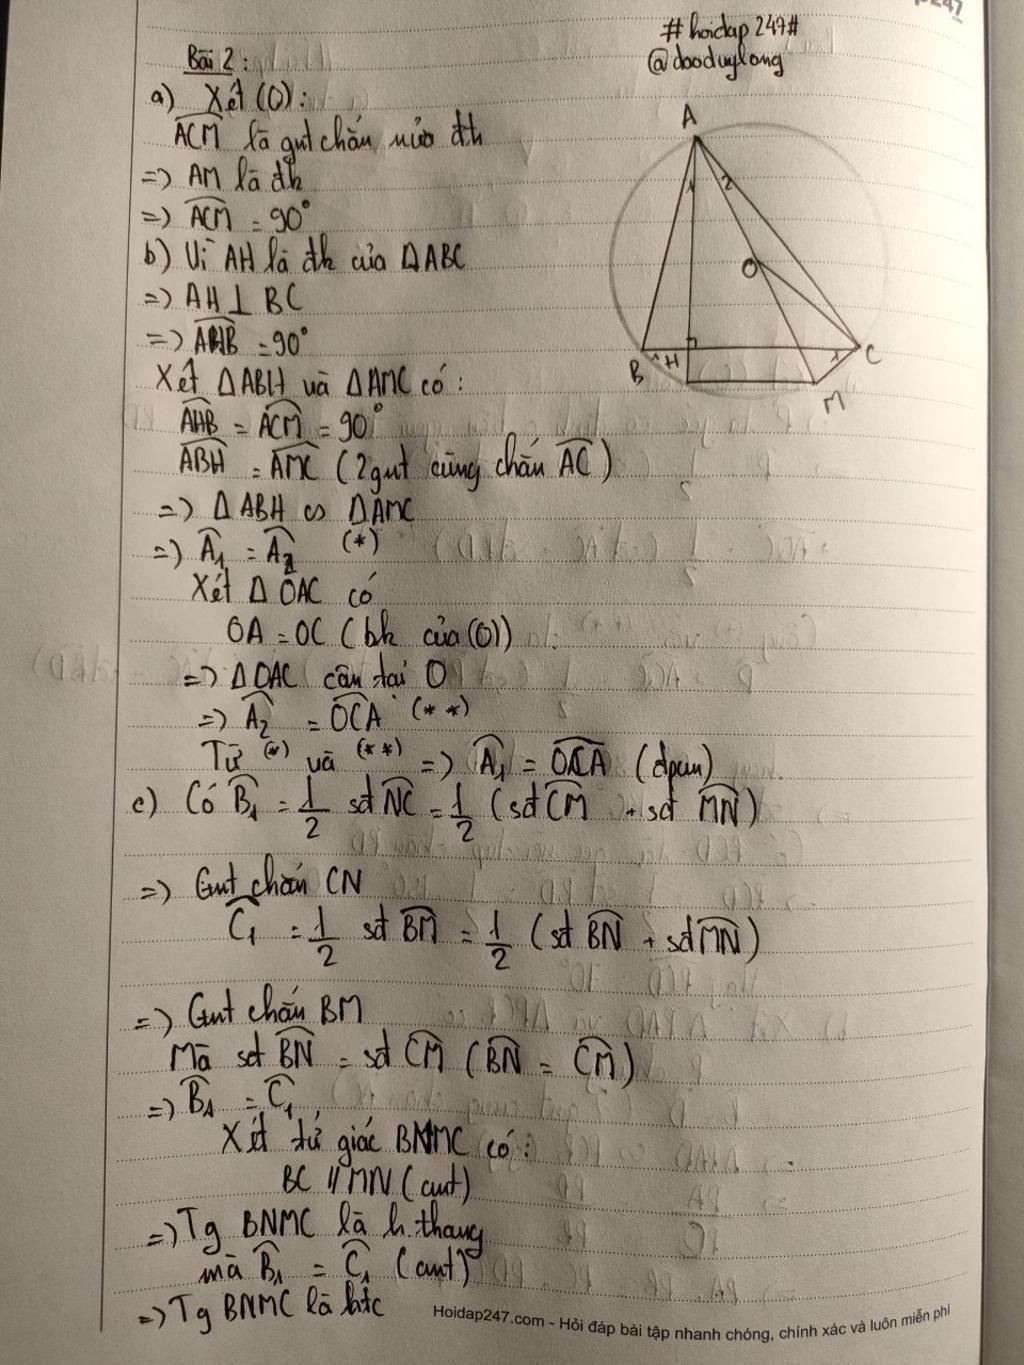 #hoidap247#
Bài 2:
@daoduylong
a) Xét (O):
ACM là gnt chắn nửa đh
=> AM là đk
=> ACM = 90°
b) Vì AH là đk của ΔABC
=> AH ⊥ BC
=> AHB = 90°
Xét ΔABH và ΔAMC có:
AHB = ACM = 90°
ABH = AMC (2gnt cùng chắn AC)
=> ΔABH ∽ ΔAMC
=> A1 = A2 (*)
Xét ΔOAC có
OA = OC (bk của (O))
=> ΔOAC cân tại O
=> A2 = OCA (**)
Từ (*) và (**) => A1 = OCA (đpcm)
c) Có B1 = 1/2 sđ NC = 1/2 (sđ CM + sđ MN)
=> Gnt chắn CN
C1 = 1/2 sđ BM = 1/2 (sđ BN + sđ MN)
=> Gnt chắn BM
Mà sđ BN = sđ CM (BN = CM)
=> B1 = C1
Xét tứ giác BNMC có:
BC // MN (cmt)
=> Tg BNMC là h.thang
mà B1 = C1 (cmt)
=> Tg BNMC là htc
A
1
2
O
B
1
H
1
C
M
Hoidap247.com - Hỏi đáp bài tập nhanh chóng, chính xác và luôn miễn phí